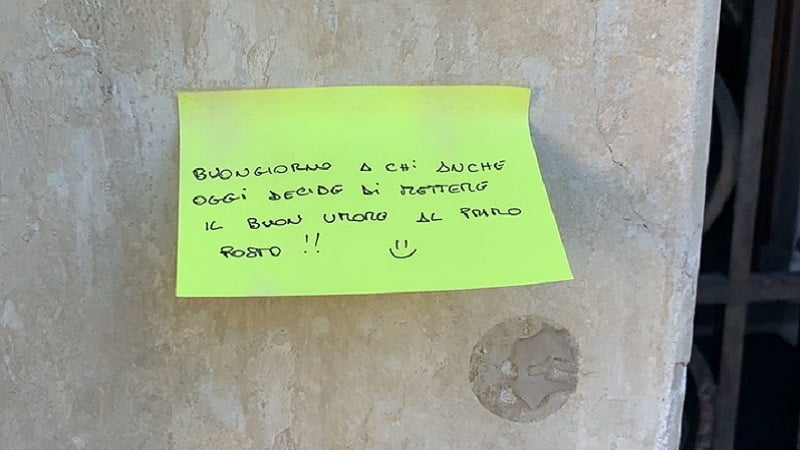 BUONGIORNO A CHi ANCHE
OGGi DECIDE Di METTERE
IL BUON UMORE AL PRIMO
POSTO !!